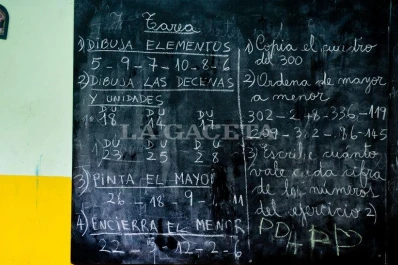 Tarea
1) DIBUJA ELEMENTOS
5-9-7-10-8-6
2) DIBUJA LAS DECENAS
Y UNIDADES
DU DU
18
DU DU DU
23 25 28
3) PINTA EL MAYOR
26-18-9-11
4) ENCIERRA EL MENOR
22 12-2-6
1) Copia el cuadro
del 300
2) Ordena de mayor
a menor
302-248-336-119
86-145
3) Escribe cuánto
vale cada cifra
de los números
del ejercicio 2)
LA GACETA